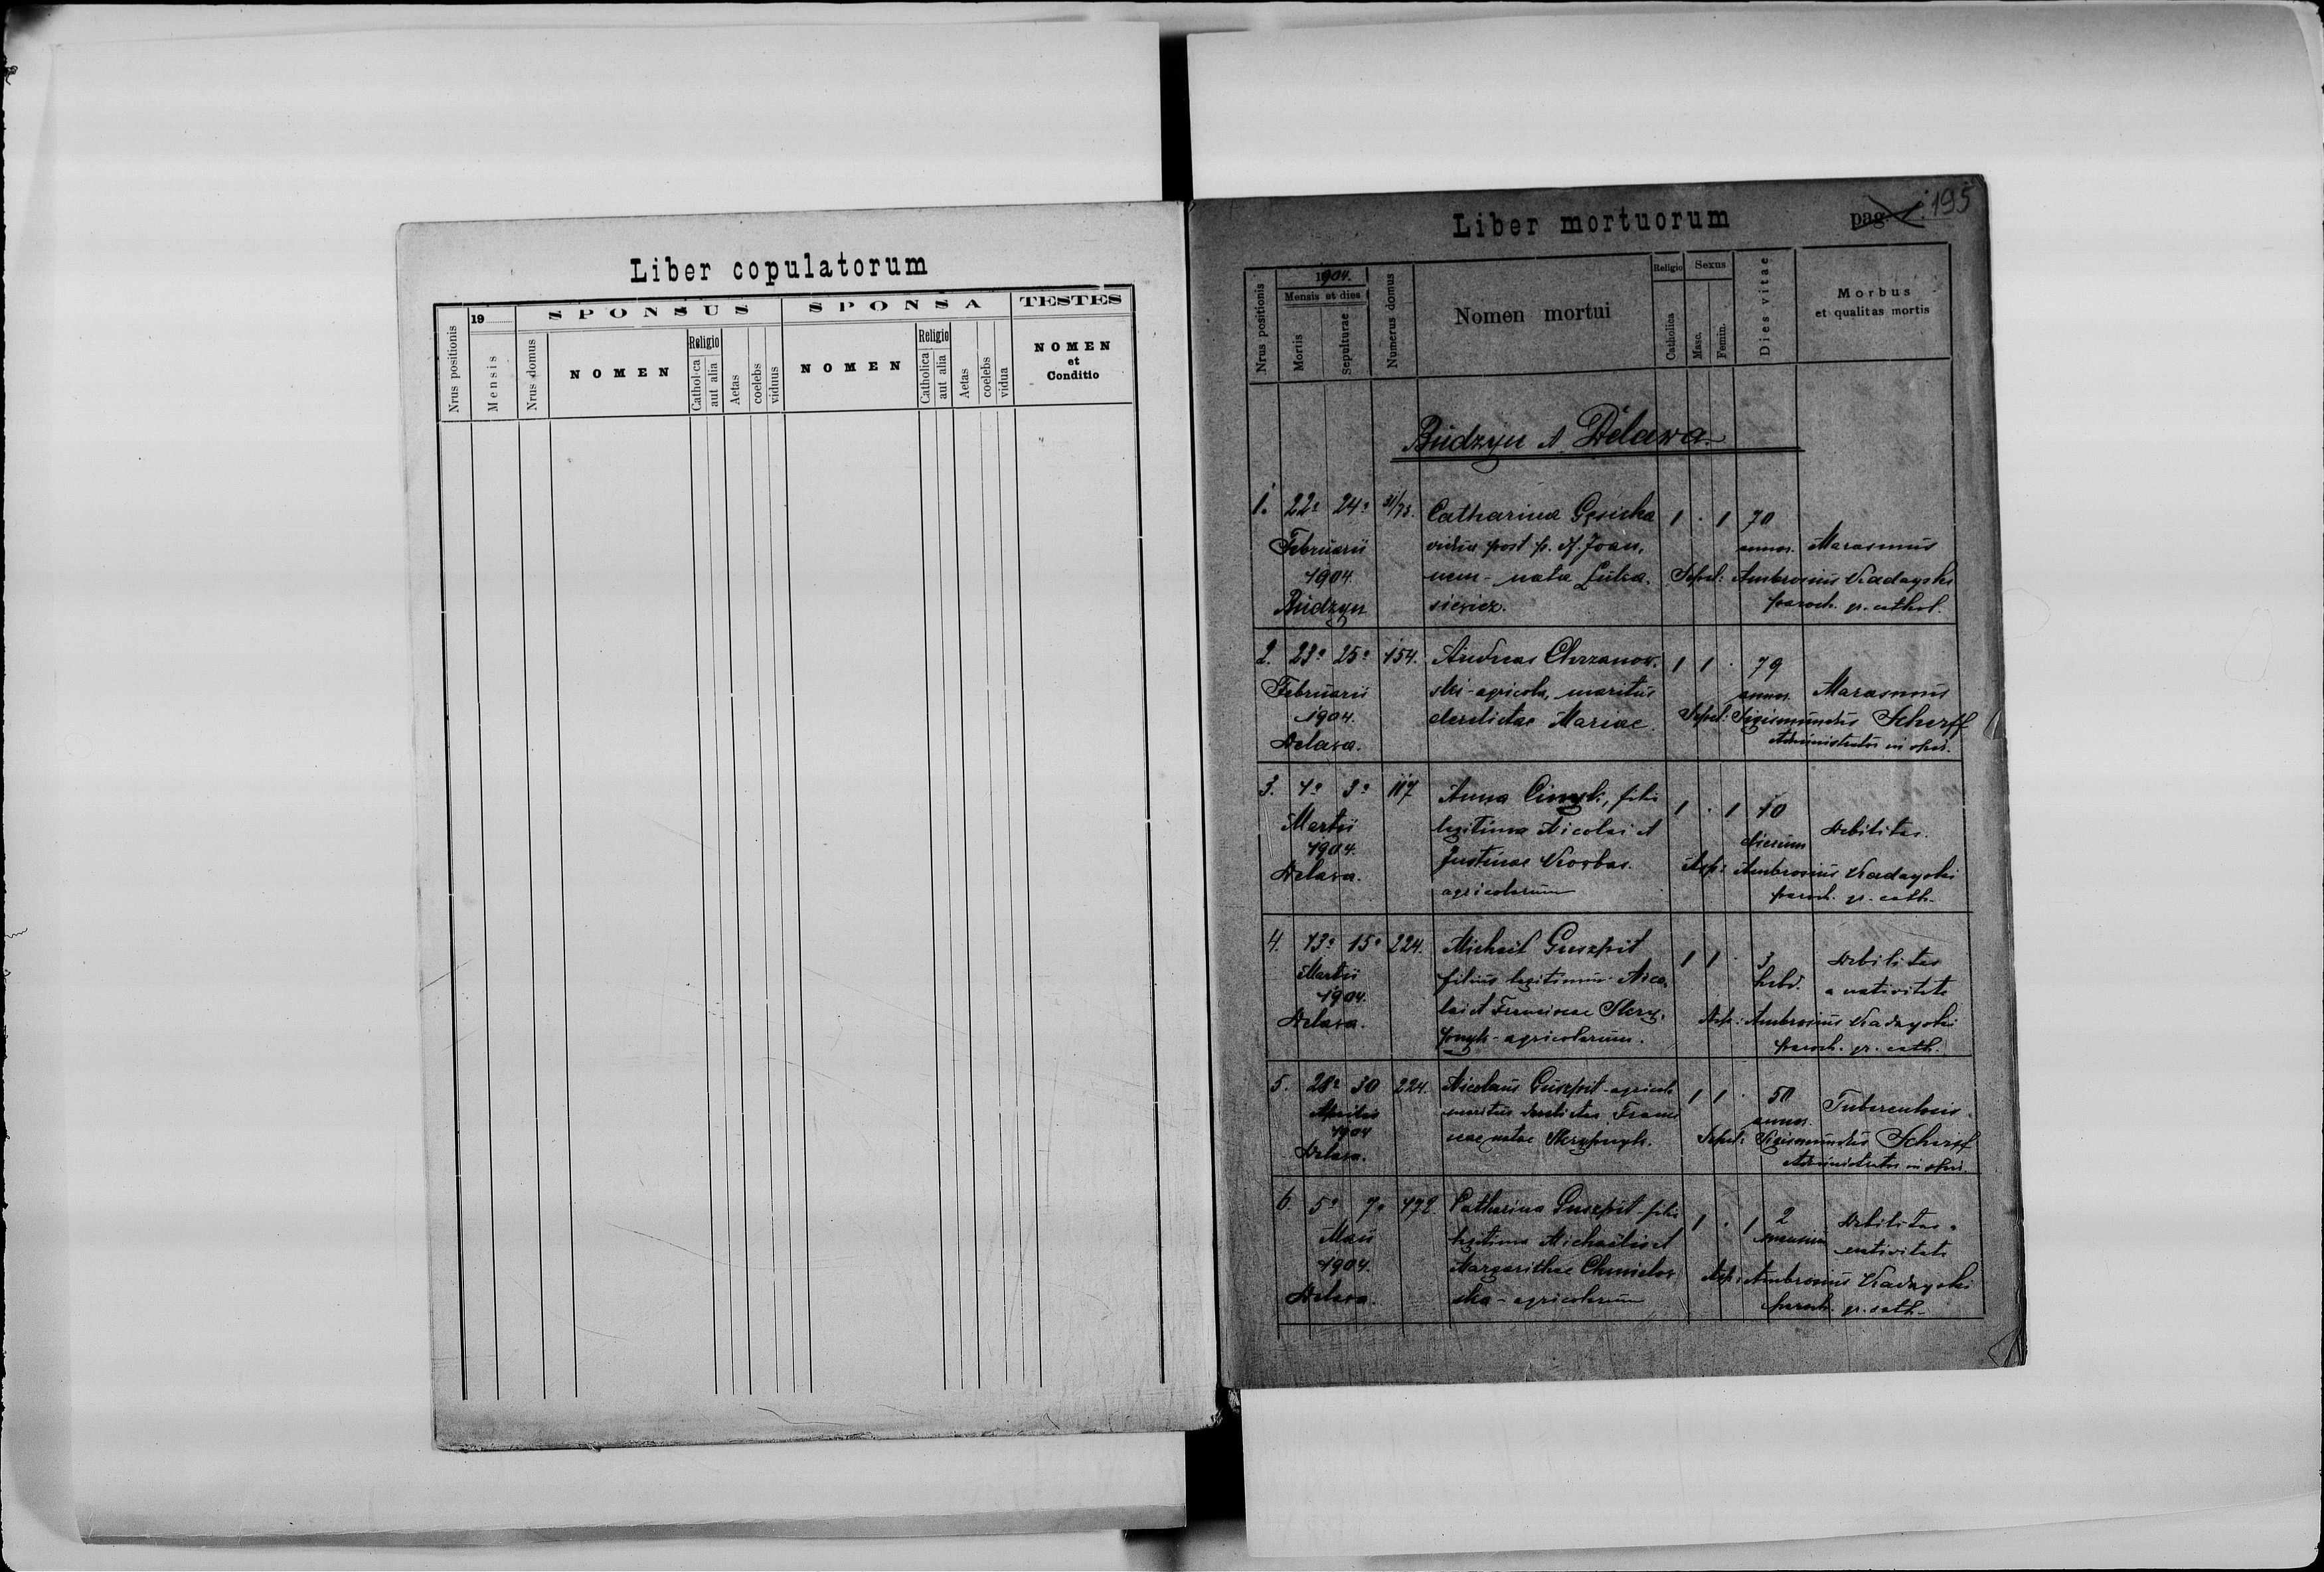 Liber copulatorum
19
SPONSUS
SPONSA
TESTES
Nrus positionis
Mensis
Nrus domus
NOMEN
Religio
Catholica
aut alia
Aetas
coelebs
viduus
NOMEN
Religio
Catholica
aut alia
Aetas
coelebs
vidua
NOMEN
et
Conditio
Liber mortuorum
pag. 195
Nrus positionis
1904.
Mensis et dies
Mortis
Sepulturae
Numerus domus
Nomen mortui
Religio
Catholica
Sexus
Masc.
Femin.
Dies vitae
Morbus
et qualitas mortis
Budzyn et Delawa
1. 22a 24a 31/73. Catharina Gęsicka 1 . 1 70
Februarii vidua post p. d. Joan, annor. Marasmus
1904. nem - nata Łuka. Sepel: Ambrosius Kadayski
Budzyn siewicz. paroch. gr. cathol.
2. 23a 25a 154. Andreas Chrzanow. 1 1 . 79
Februarii ski - agricola, maritus annor. Marasmus
1904. derelictae Mariae. Sepel: Sigismundus Scherff
Delawa. Administrator in spir.
3. 1a 3a 117 Anna, filia 1 . 1 10
Martii legitima Nicolai et Debilitas.
1904. Justinae Korbas. dierum
Delawa. agricolarum Ambrosius Kadayski
paroch. gr. cath.
4. 13a 15a 224. Michael Guszpit 1 1 . 3 Debilitas
Martii filius legitimus Nico, hebd. a nativitate
1904. lai et Franciscae
Delawa. - agricolarum. Ambrosius Kadayski
paroch. gr. cath.
5. 28a 30 224. Nicolaus Guszpit - agricola 1 1 . 50 Tuberculosis.
Aprilis maritus derelictae Francis annor.
1904 cae natae Sepel: Sigismundus Scherff
Delawa. Administrator in spir.
6. 5a 7a 172 Catharina Guszpit - filia 1 . 1 2 Debilitas a
Maii legitima Michaelis et mensium nativitate
1904. Margarithae Chmielow Ambrosius Kadayski
Delawa. ska - agricolarum paroch. gr. cath.